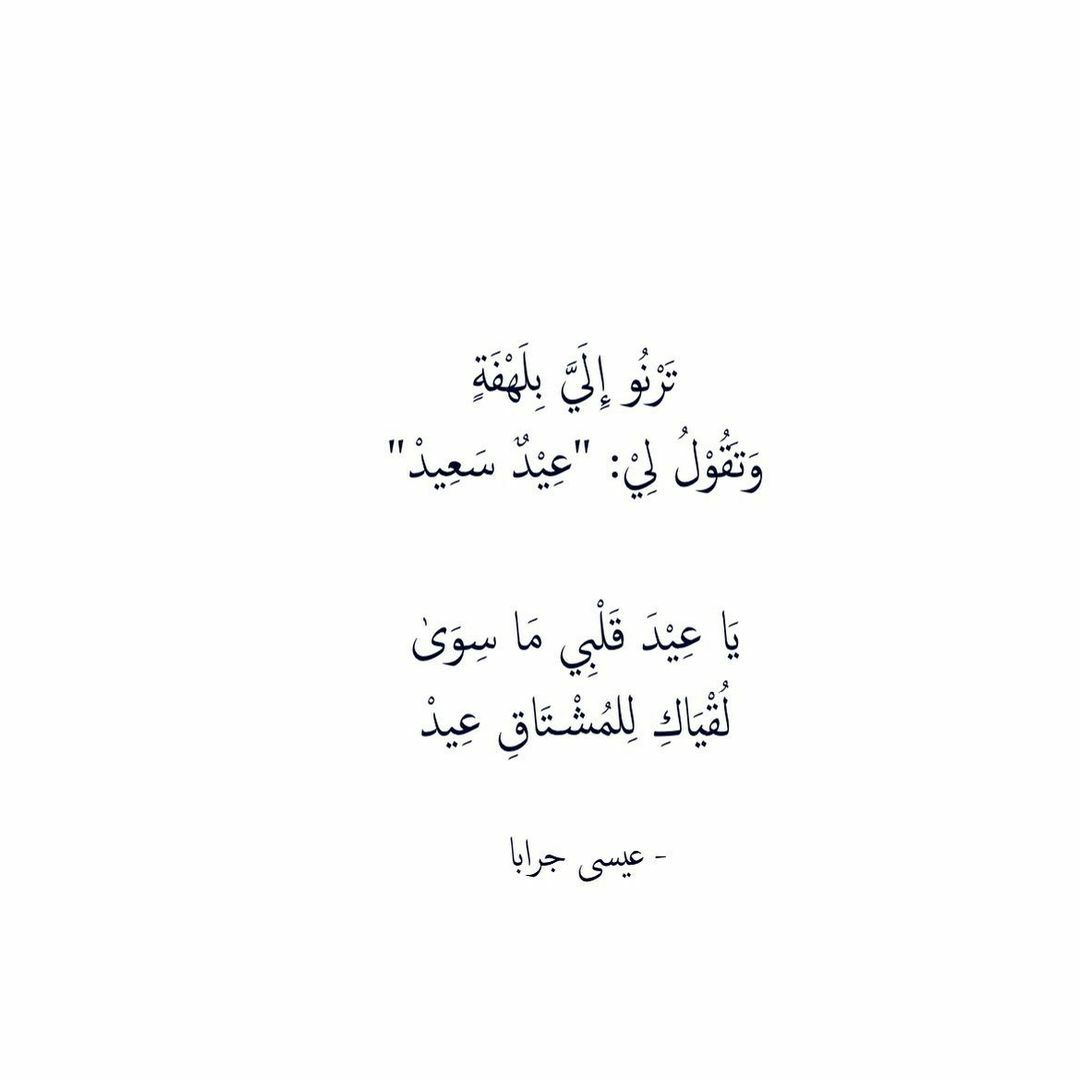 تَرْنُو إِلَيَّ بِلَهْفَةٍ
وَتَقُوْلُ لِيْ: "عِيْدٌ سَعِيدْ"
يَا عِيْدَ قَلْبِي مَا سِوَىٰ
لُقْيَاكِ لِلمُشْتَاقِ عِيدْ
- عيسى جرابا